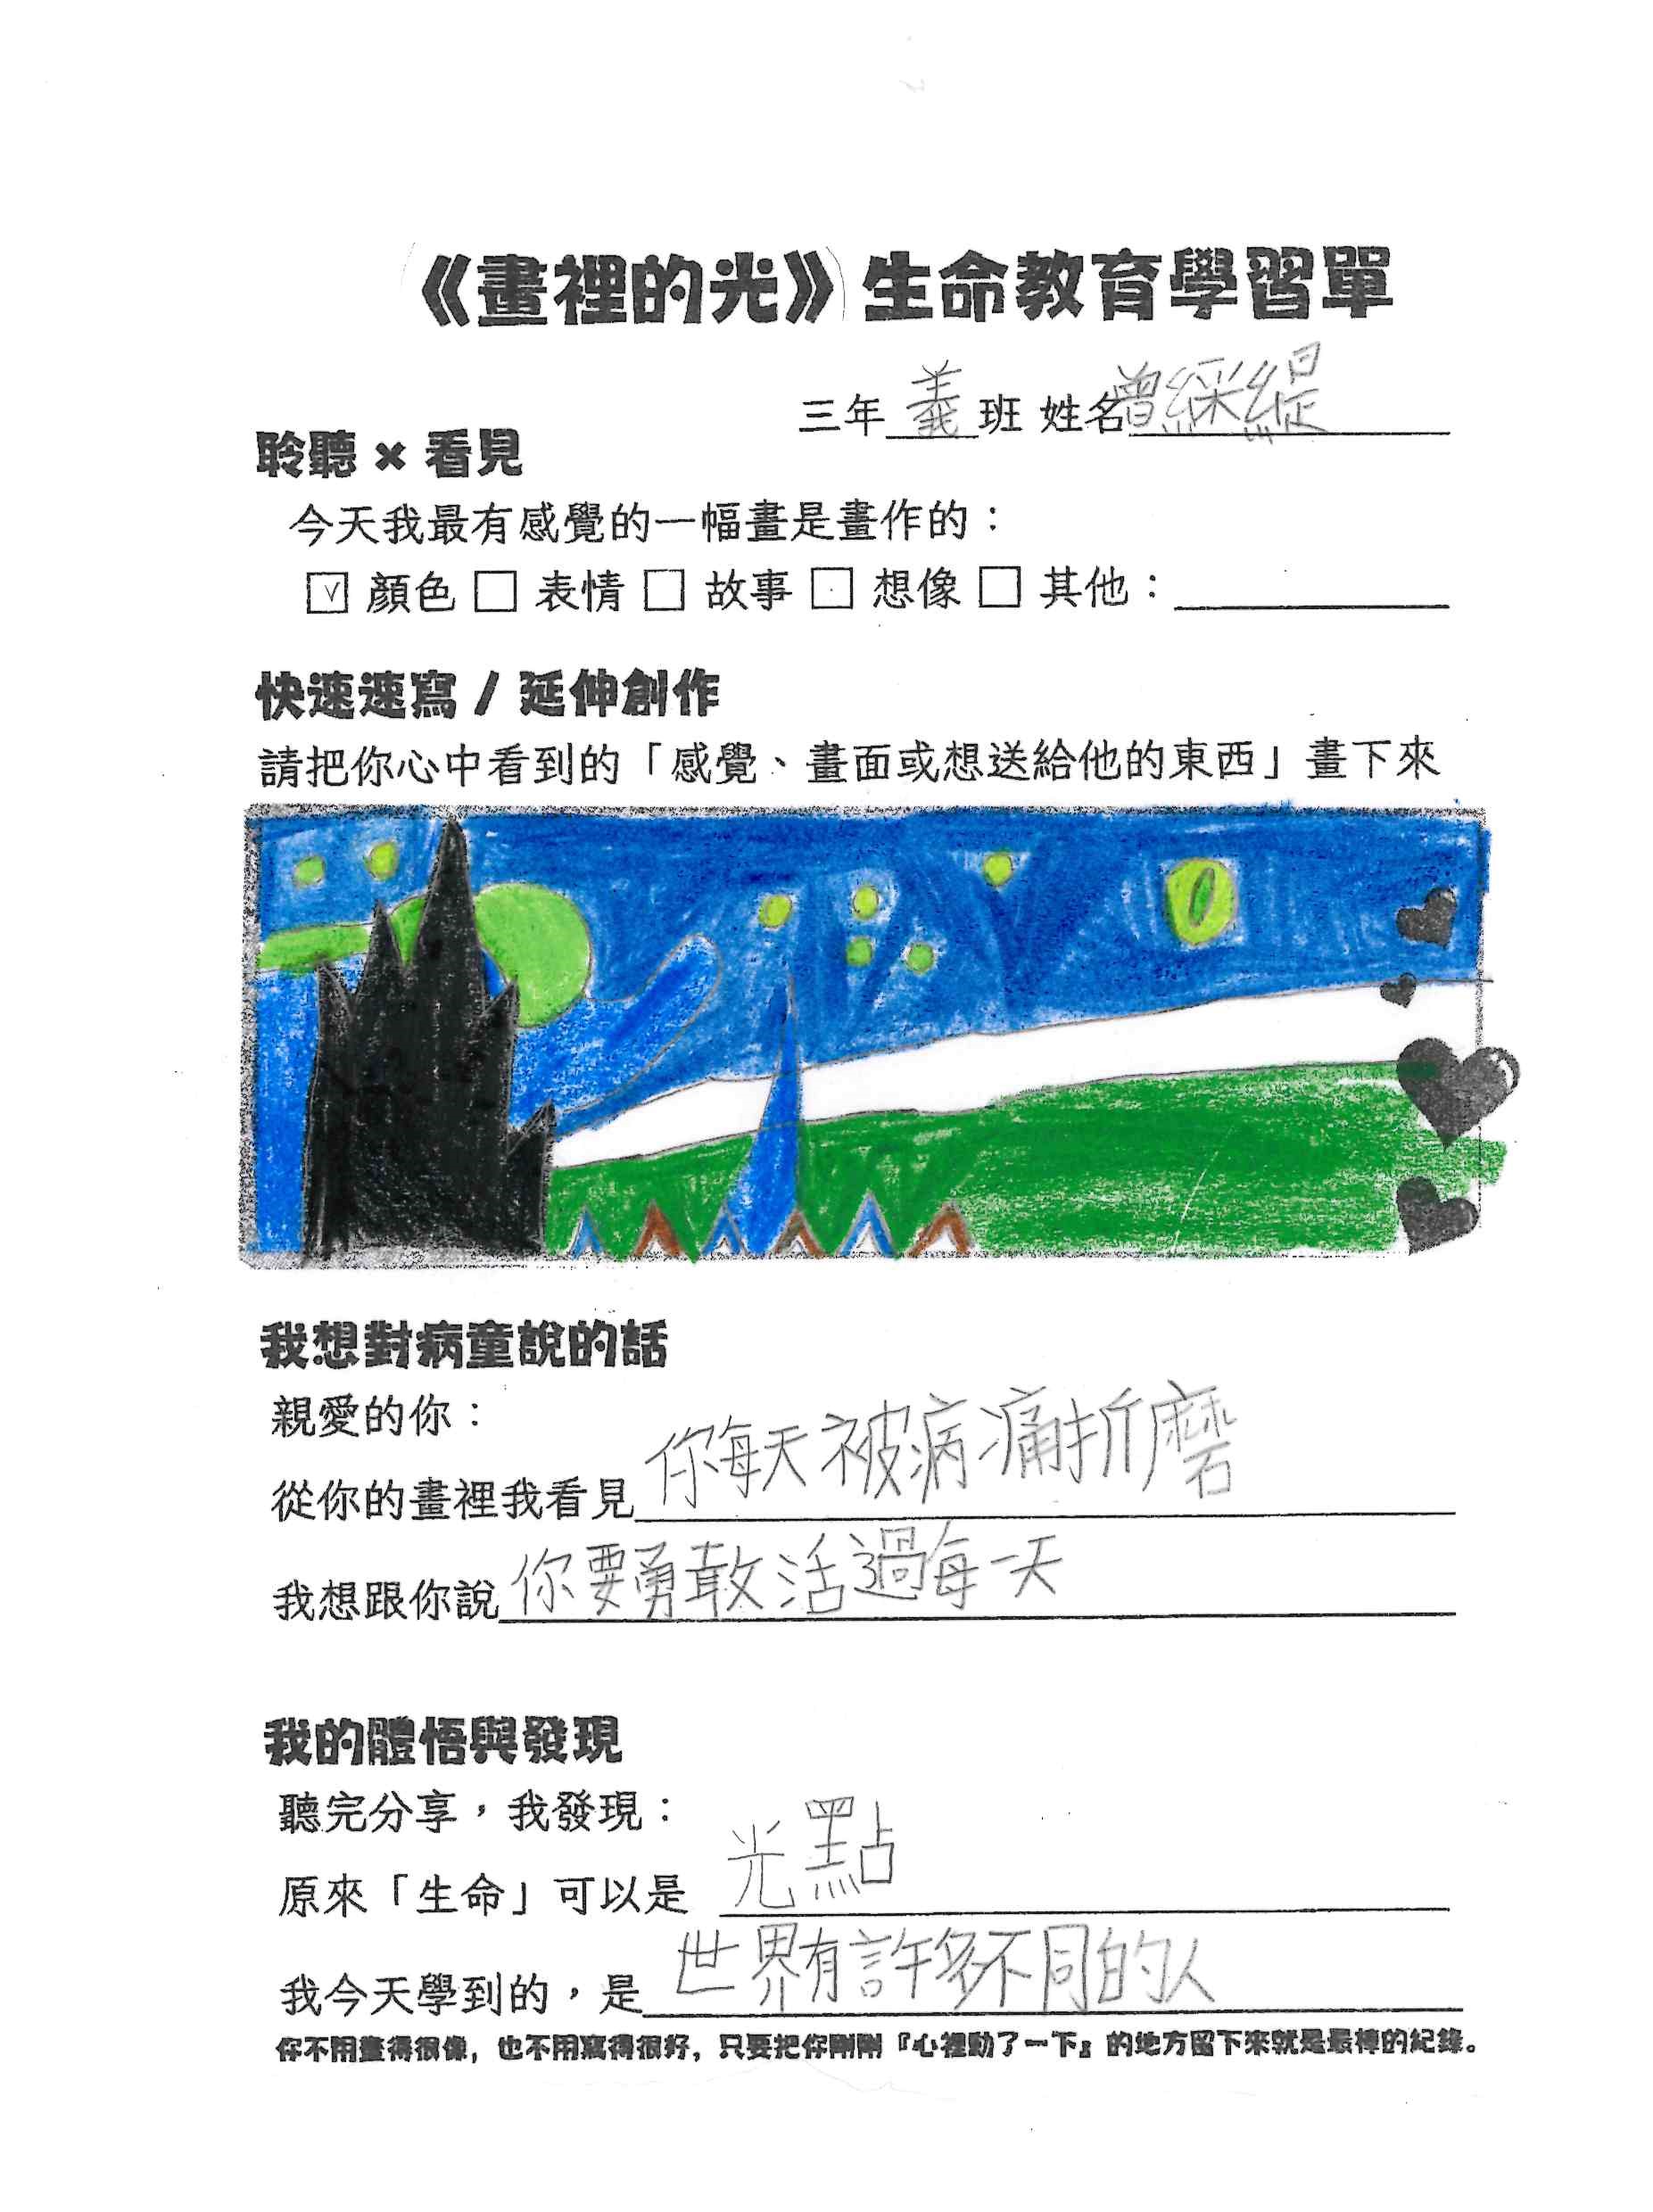 《畫裡的光》生命教育學習單
三年義班 姓名曾綵緹
聆聽 × 看見
今天我最有感覺的一幅畫是畫作的：
☑ 顏色 □ 表情 □ 故事 □ 想像 □ 其他：
快速速寫 / 延伸創作
請把你心中看到的「感覺、畫面或想送給他的東西」畫下來
我想對病童說的話
親愛的你：
從你的畫裡我看見你每天被病痛折磨
我想跟你說你要勇敢活過每一天
我的體悟與發現
聽完分享，我發現：
原來「生命」可以是 光點
我今天學到的，是世界有許多不同的人
你不用畫得很像，也不用寫得很好，只要把你剛剛『心裡動了一下』的地方留下來就是最棒的紀錄。